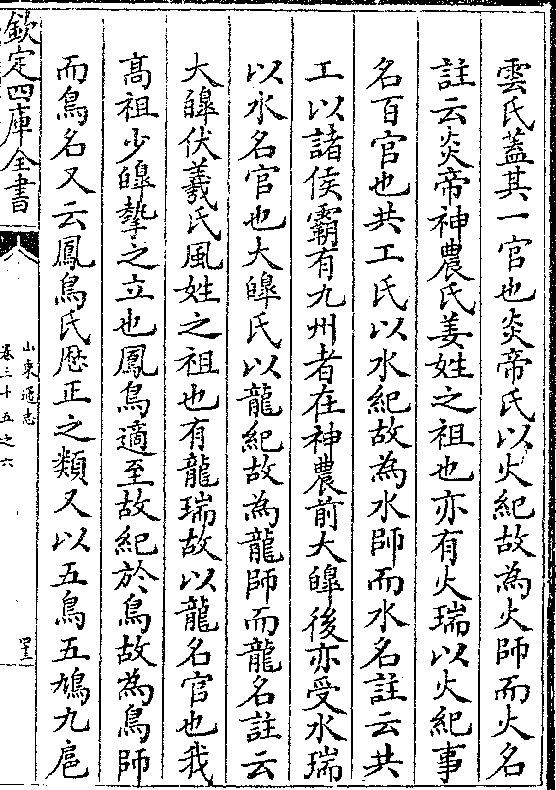 雲氏蓋其一官也炎帝氏以火紀故為火師而火名
註云炎帝神農氏姜姓之祖也亦有火瑞以火紀事
名百官也共工氏以水紀故為水師而水名註云共
工以諸侯霸有九州者在神農前大皥後亦受水瑞
以水名官也大皥氏以龍紀故為龍師而龍名註云
大皥伏羲氏風姓之祖也有龍瑞故以龍名官也我
髙祖少皥摯之立也鳳鳥適至故紀於鳥故為鳥師
而鳥名又云鳳鳥氏歴正之類又以五鳥五鳩九扈
欽定四庫全書
山東通志
卷三十五之六